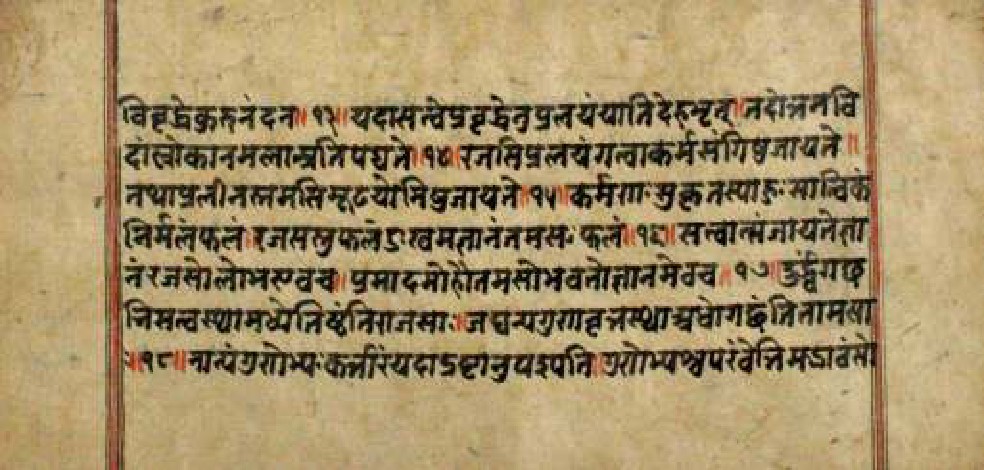 विवृद्धेकुरुनंदन॥१३॥यदासत्वेप्रवृद्धेतुप्रलयंयातिदेहभृत्॥तदोत्तमवि
दांल्लोकानमलान्प्रतिपद्यते॥१४॥रजसिप्रलयंगत्वाकर्मसंगिषुजायते॥
तथाप्रलीनस्तमसिमूढयोनिषुजायते॥१५॥कर्मणःसुकृतस्याहुःसात्विकं
निर्मलंफलं॥रजसस्तुफलंदुःखमज्ञानंतमसःफलं॥१६॥सत्वात्संजायतेज्ञा
नंरजसोलोभएवच॥प्रमादमोहौतमसोभवतोज्ञानमेवच॥१७॥ऊर्द्ध्वंगछं
तिसत्वस्थामध्येतिष्ठंतिराजसाः॥जघन्यगुणवृत्तस्थाअधोगछंतितामसा
ः॥१८॥नान्यंगुणेभ्यःकर्त्तारंयदाद्रष्टानुपश्यति॥गुणेभ्यश्चपरंवेत्तिमद्भावंसो